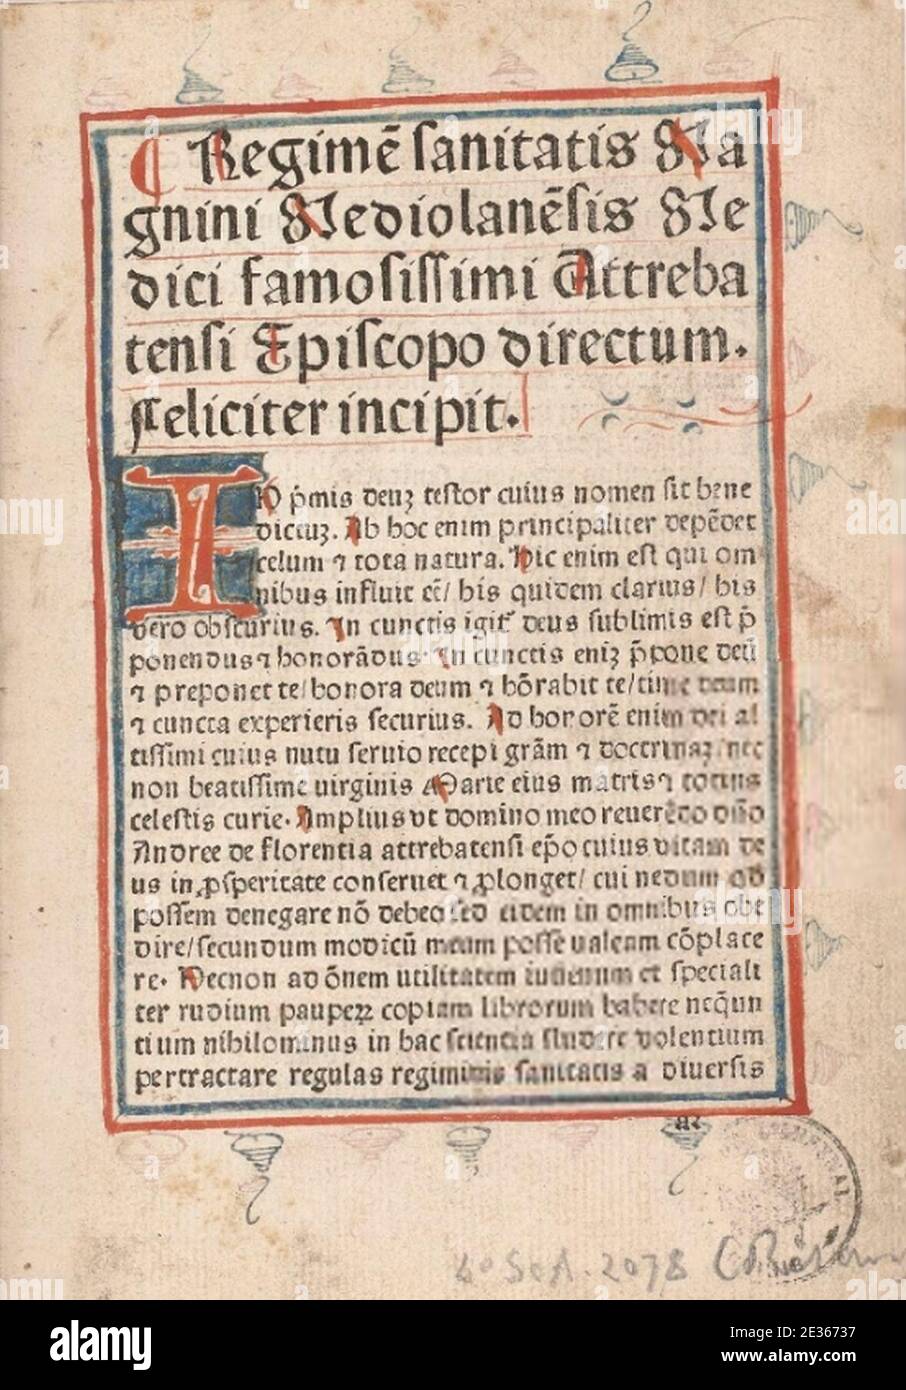 ¶ Regimē ſanitatis Ma
gnini Mediolanēſis Me
dici famoſiſſimi Attreba
tenſi Epiſcopo directum.
Feliciter incipit.
IN p̄mis deuꝫ teſtor cuius nomen ſit bene
dictuꝫ. Ab hoc enim principaliter depēdet
celum ⁊ tota natura. Hic enim eſt qui om
nibus influit eē/ his quidem clarius/ his
vero obſcurius. In cunctis igit᷑ deus ſublimis eſt p̄
ponendus ⁊ honorādus. In cunctis eniꝫ p̄pone deū
⁊ preponet te/ honora deum ⁊ hōrabit te/ time deum
⁊ cuncta experieris ſecurius. Ad honorē enim dei al
tiſſimi cuius nutu ſeruio recepi grām ⁊ doctrinaꝫ nec
non beatiſſime virginis Marie eius matris ⁊ totius
celeſtis curie. Amplius vt domino meo reuerēdo dn̄o
Andree de florentia attrebatenſi ep̄o cuius vitam de
us in ꝓſperitate conſeruet ⁊ ꝓlonget/ cui nedum qd̓
poſſem denegare nō debeo ſed eidem in omnibus obe
dire/ ſecundum modicū meum poſſe valeam cōplace
re. Necnon ad ōnem utilitatem iuuenum et ſpeciali
ter rudium pauperꝝ copiam librorum habere neq̄un
tium nihilominus in hac ſcientia ſtudere volentium
pertractare regulas regiminis ſanitatis a diuerſis
a2
4° Sed. 2078
alamy
Image ID: 2E36737
www.alamy.com